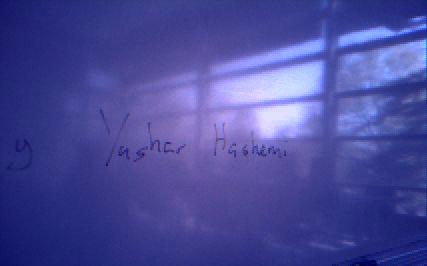 y Yashar Hashemi